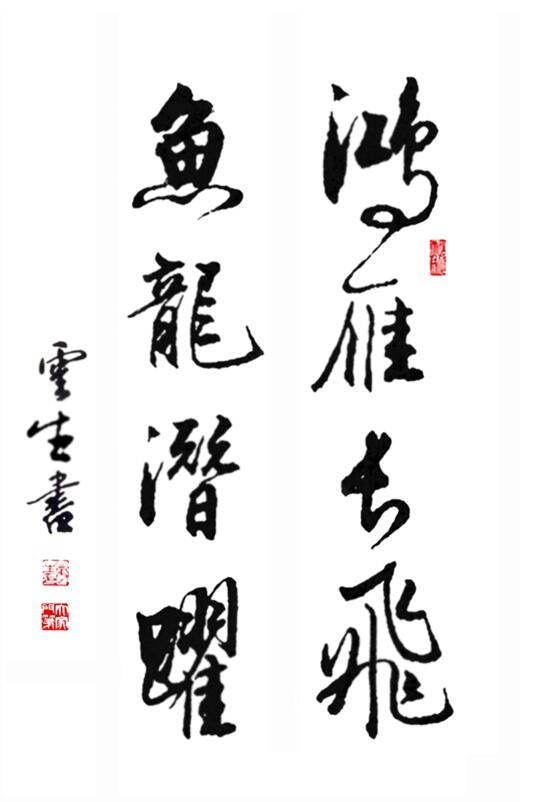 鴻雁長飛
魚龍潛躍
雲生書